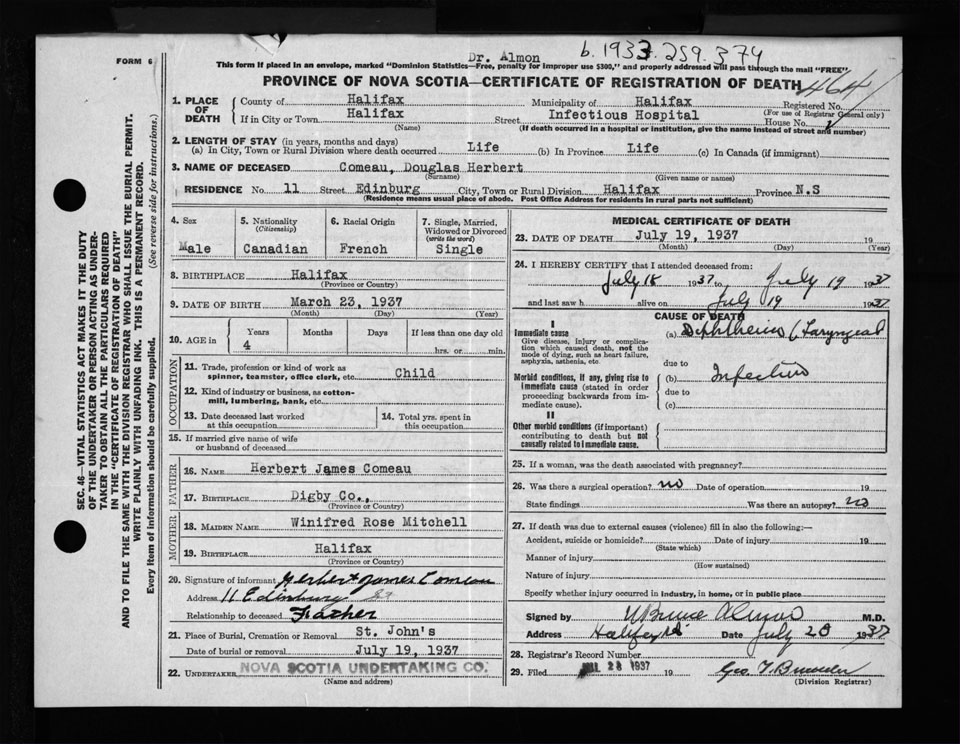 Dr. Almon
b. 1933. 259. 374
FORM 6
This form if placed in an envelope, marked "Dominion Statistics—Free, penalty for improper use $300," and properly addressed will pass through the mail "FREE"
PROVINCE OF NOVA SCOTIA—CERTIFICATE OF REGISTRATION OF DEATH
464
1. PLACE OF DEATH
County of Halifax Municipality of Halifax Registered No.
(For use of Registrar General only)
If in City or Town Halifax Street Infectious Hospital House No.
(Name) (If death occurred in a hospital or institution, give the name instead of street and number)
2. LENGTH OF STAY (in years, months and days)
(a) In City, Town or Rural Division where death occurred Life (b) In Province Life (c) In Canada (if immigrant)
3. NAME OF DECEASED Comeau, Douglas Herbert
(Surname) (Given name or names)
RESIDENCE No. 11 Street Edinburg City, Town or Rural Division Halifax Province N.S
(Residence means usual place of abode. Post Office Address for residents in rural parts not sufficient)
4. Sex Male
5. Nationality (Citizenship) Canadian
6. Racial Origin French
7. Single, Married, Widowed or Divorced (write the word) Single
8. BIRTHPLACE Halifax
(Province or Country)
9. DATE OF BIRTH March 23, 1937
(Month) (Day) (Year)
10. AGE in Years Months Days If less than one day old
4 hrs. or min.
OCCUPATION
11. Trade, profession or kind of work as spinner, teamster, office clerk, etc. Child
12. Kind of industry or business, as cotton-mill, lumbering, bank, etc.
13. Date deceased last worked at this occupation
14. Total yrs. spent in this occupation
15. If married give name of wife or husband of deceased
FATHER
16. NAME Herbert James Comeau
17. BIRTHPLACE Digby Co.,
(Province or Country)
MOTHER
18. MAIDEN NAME Winifred Rose Mitchell
19. BIRTHPLACE Halifax
(Province or Country)
20. Signature of informant Herbert James Comeau
Address 11 Edinburg St
Relationship to deceased Father
21. Place of Burial, Cremation or Removal St. John's
Date of burial or removal July 19, 1937
22. UNDERTAKER NOVA SCOTIA UNDERTAKING CO.
(Name and address)
MEDICAL CERTIFICATE OF DEATH
23. DATE OF DEATH July 19, 1937 19
(Month) (Day) (Year)
24. I HEREBY CERTIFY that I attended deceased from:
July 18 1937 to July 19 1937
and last saw h alive on July 19 1937
CAUSE OF DEATH
I
Immediate cause
Give disease, injury or complication which caused death, not the mode of dying, such as heart failure, asphyxia, asthenia, etc.
(a) Diphtheria (Laryngeal
due to
Morbid conditions, if any, giving rise to immediate cause (stated in order proceeding backwards from immediate cause).
(b)
due to
(c)
II
Other morbid conditions (if important) contributing to death but not causally related to immediate cause.
25. If a woman, was the death associated with pregnancy?
26. Was there a surgical operation? no Date of operation 19
State findings Was there an autopsy? no
27. If death was due to external causes (violence) fill in also the following:—
Accident, suicide or homicide? Date of injury 19
(State which)
Manner of injury
(How sustained)
Nature of injury
Specify whether injury occurred in industry, in home, or in public place
Signed by W Bruce Almon M.D.
Address Halifax Date July 28 1937
28. Registrar's Record Number
29. Filed JUL 28 1937 19
(Division Registrar)
SEC. 46—VITAL STATISTICS ACT MAKES IT THE DUTY
OF THE UNDERTAKER OR PERSON ACTING AS UNDER-
TAKER TO OBTAIN ALL THE PARTICULARS REQUIRED
IN THE "CERTIFICATE OF REGISTRATION OF DEATH"
AND TO FILE THE SAME WITH THE DIVISION REGISTRAR WHO SHALL ISSUE THE BURIAL PERMIT.
WRITE PLAINLY WITH UNFADING INK. THIS IS A PERMANENT RECORD.
Every item of information should be carefully supplied. (See reverse side for instructions.)